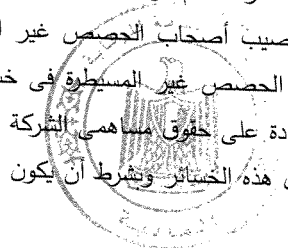 صيب أصحاب الحصص غير ا
الحصص غير المسيطرة فى خس
دة على حقوق مساهمى الشركة
هذه الخسائر ويشرط ان يكون